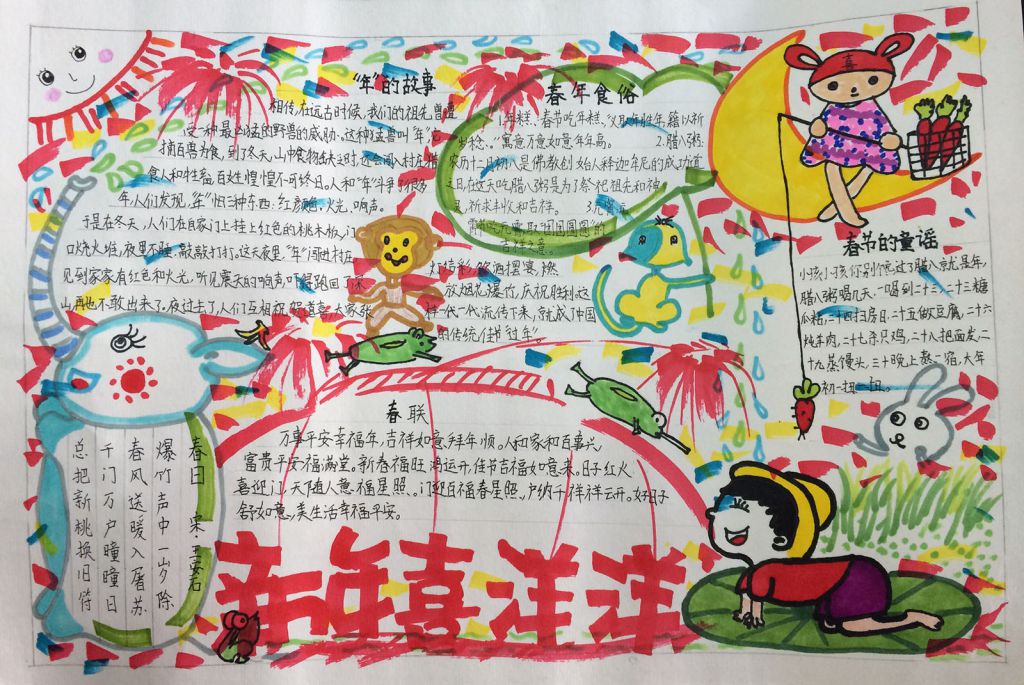 “年”的故事
相传,在远古时候,我们的祖先曾遭
受一种最凶猛的野兽的威胁.这种猛兽叫“年”它
捕百兽为食,到了冬天,山中食物缺乏时,还会闯入村庄,猎
食人和牲畜,百姓惶惶不可终日。人和“年”斗争了很多
年,人们发现,“年”怕三种东西:红颜色、火光、响声。
于是在冬天,人们在自家门上挂上红色的桃木板,门
口烧火堆,夜里不睡,敲敲打打。这天夜里,“年”闯进村庄
见到家家有红色和火光,听见震天的响声,吓得跑回了深
山,再也不敢出来了。夜过去了,人们互相祝贺道喜,大家张
灯结彩,饮酒摆宴,燃
放烟花爆竹,庆祝胜利这
样一代一代流传下来,就成了中国
的传统佳节“过年”。
春年食俗
1.年糕:春节吃年糕,“义取年胜年,籍以祈
岁稔。”寓意万意如意年年高。 2.腊八粥:
农历十二月初八是佛教创始人释迦牟尼的成功道
之日,在这天吃腊八粥是为了祭祀祖先和神
灵,祈求丰收和吉祥。 3.元宵
取“团团圆圆”的
吉祥之意。
春节的童谣
小孩小孩你别馋,过了腊八就是年,
腊八粥喝几天,一喝到二十三,二十三糖
瓜粘,二十四扫房日,二十五做豆腐,二十六
炖羊肉,二十七杀只鸡,二十八把面发,二
十九蒸馒头,三十晚上熬一宿,大年
初一扭一扭。
春联
万事平安幸福年,吉祥如意拜年顺。人和家和百事兴,
富贵平安福满堂。新春福旺鸿运开,佳节吉福如意来。日子红火
喜迎门,天随人意福星照。门迎百福春星照。户纳千祥祥云开。好日子
舒如意,美生活幸福平安。
春日 宋·王安石
爆竹声中一岁除
春风送暖入屠苏
千门万户曈曈日
总把新桃换旧符
新年喜洋洋